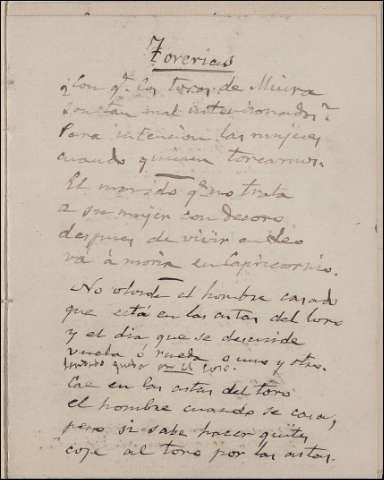 Torerias
¿Con q.e los toros de Miura
son tan mal intencionados?
Para intencion las mujeres
cuando quieren torearnos.
El marido q.e no trata
a su mujer con decoro
despues de vivir en Leo
vá á morir en Capricornio.
No olvide el hombre casado
que está en las astas del toro
y el dia que se descuide
vuela ó rueda o uno y otro.
Cae en las astas del toro
el hombre cuando se casa,
pero si sabe hacer quites
coje al toro por las astas.